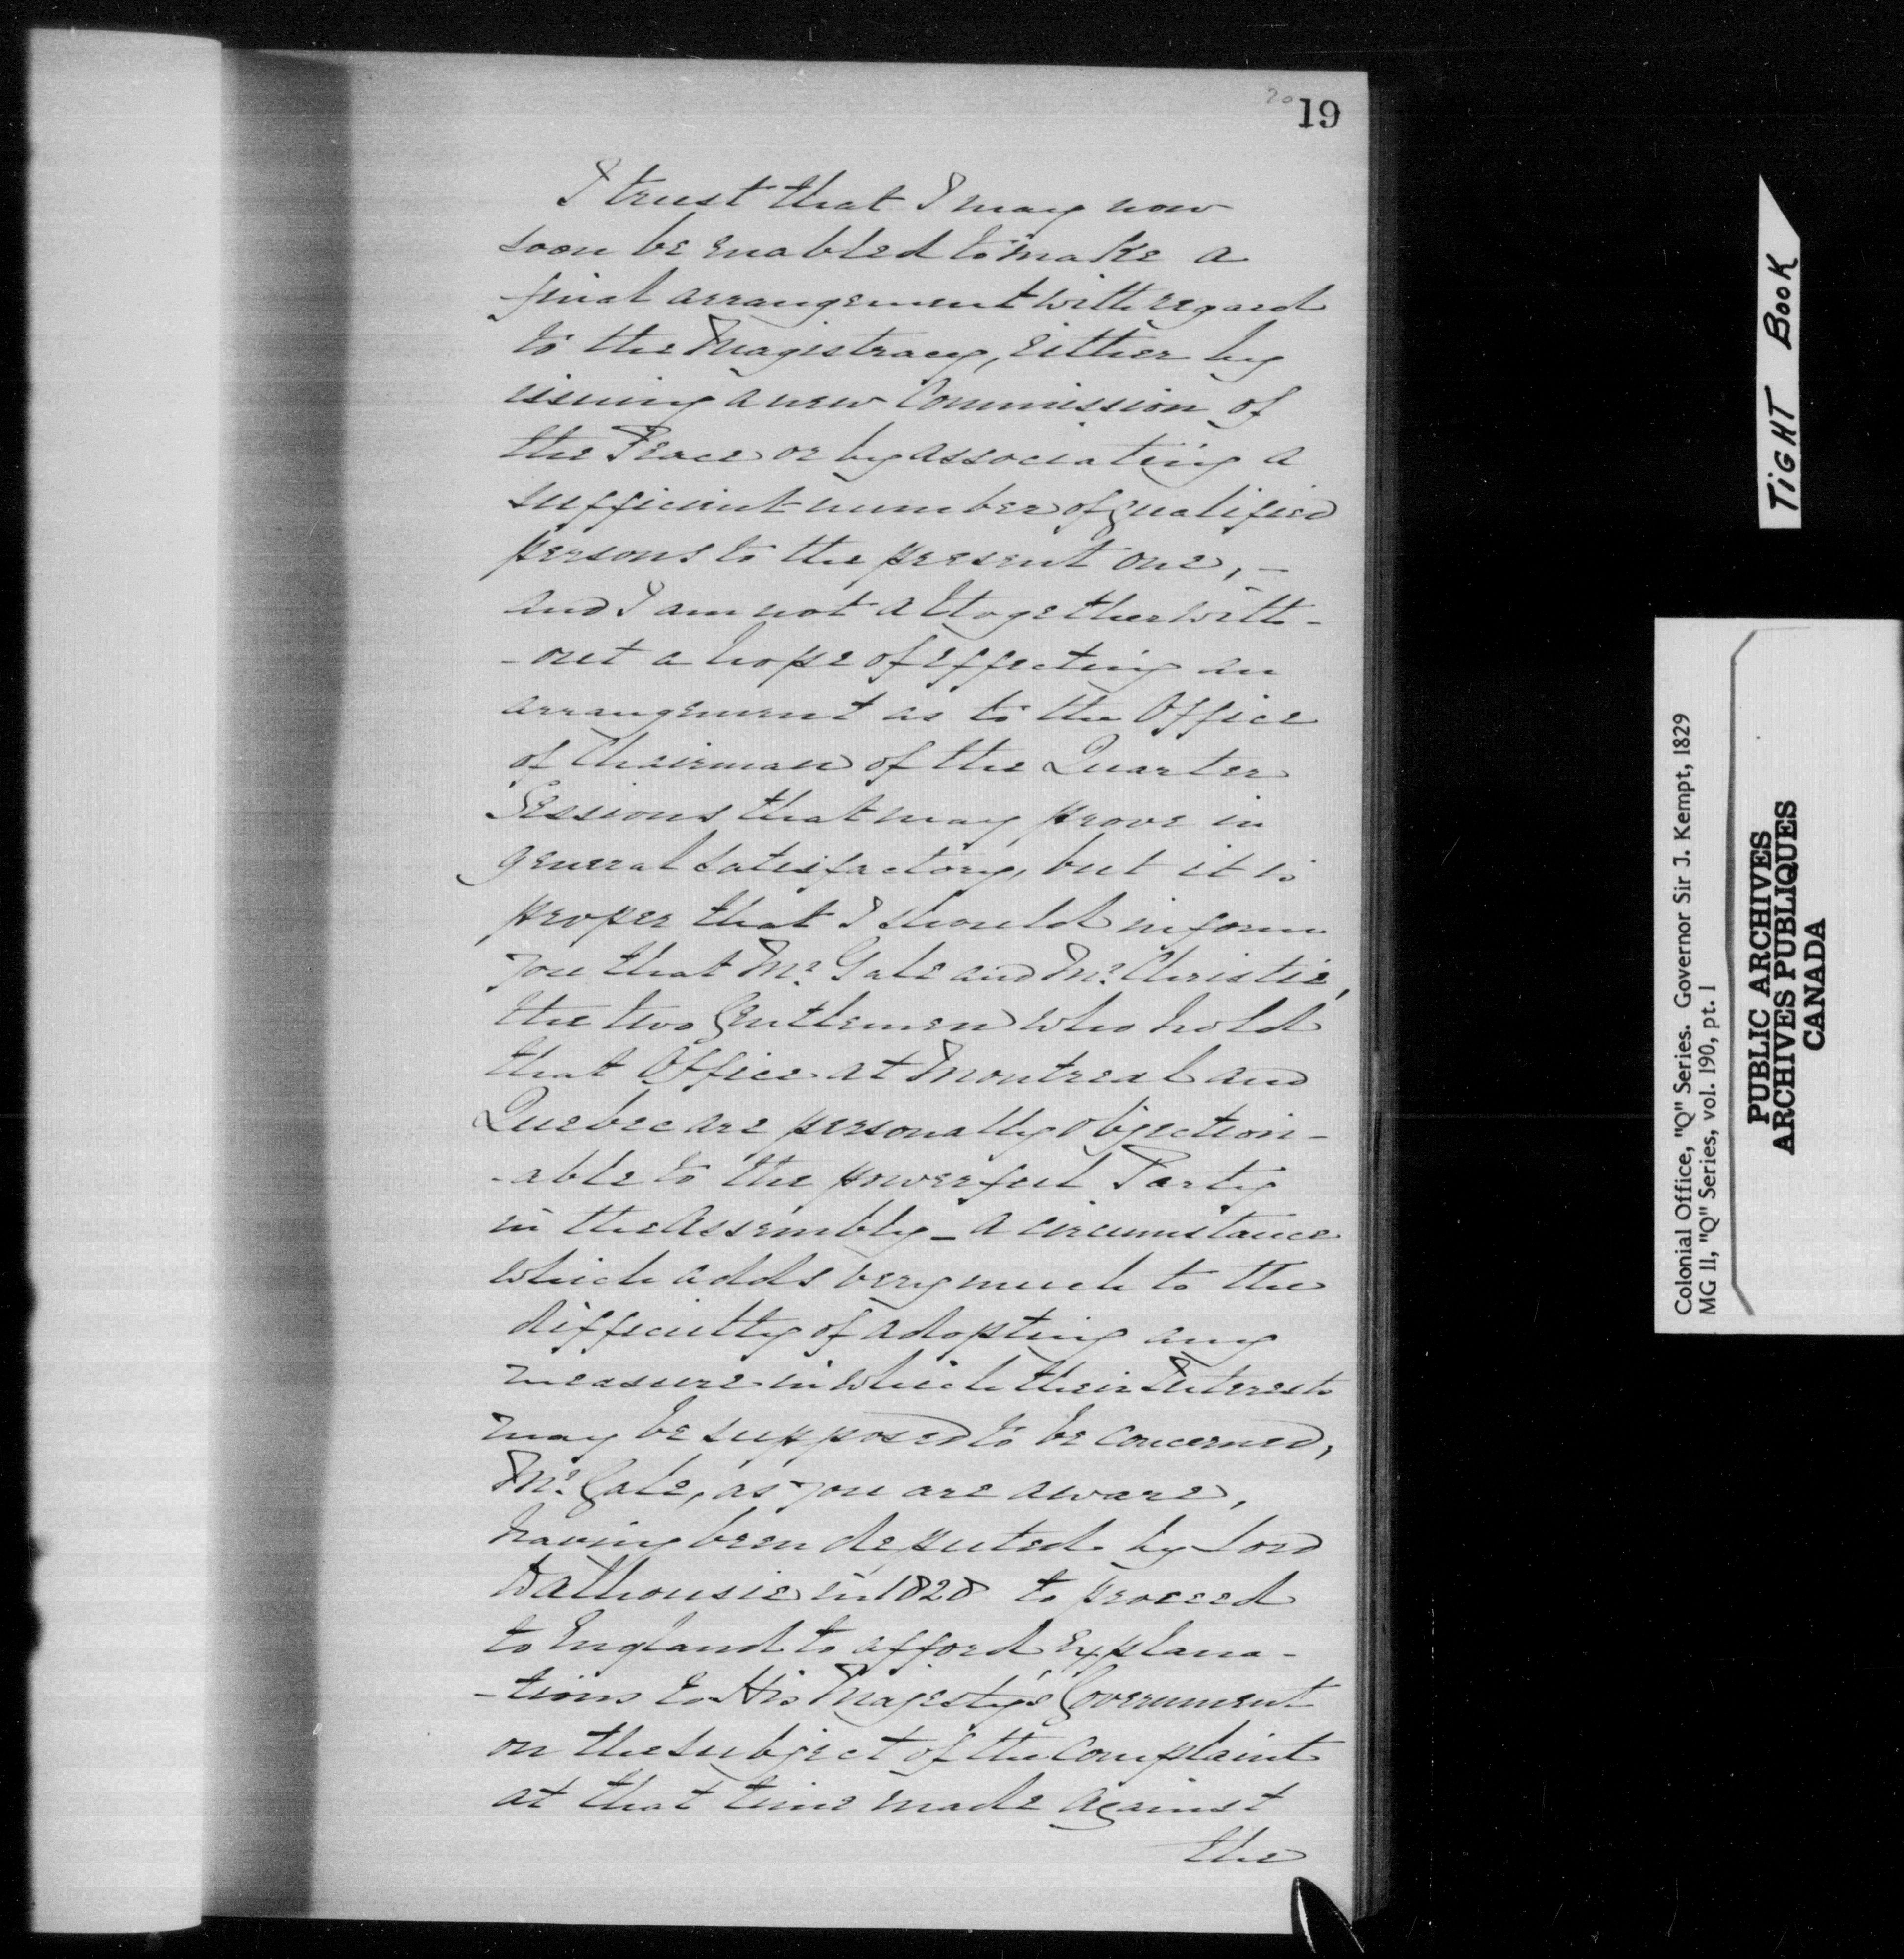 20 19
I trust that I may now
soon be enabled to make a
final arrangement with regard
to the Magistracy, either by
issuing a new Commission of
the Peace or by associating a
sufficient number of qualified
persons to the present one, -
and I am not altogether with-
-out a hope of effecting an
arrangement as to the Office
of Chairman of the Quarter
Sessions that may prove in
general satisfactory, but it is
proper that I should inform
you that Mr. Gale and Mr. Christie,
the two Gentlemen who hold
that Office at Montreal and
Quebec are personally objection-
-able to the powerful Party
in the Assembly - a circumstance
which adds very much to the
difficulty of adopting any
measure in which their Interests
may be supposed to be concerned,
Mr. Gale, as you are aware,
having been deputed by Lord
Dalhousie in 1828 to proceed
to England to afford explana-
-tions to His Majesty's Government
on the subject of the complaint
at that time made against
the
TIGHT BOOK
Colonial Office, "Q" Series. Governor Sir J. Kempt, 1829
MG 11, "Q" Series, vol. 190, pt. 1
PUBLIC ARCHIVES
ARCHIVES PUBLIQUES
CANADA